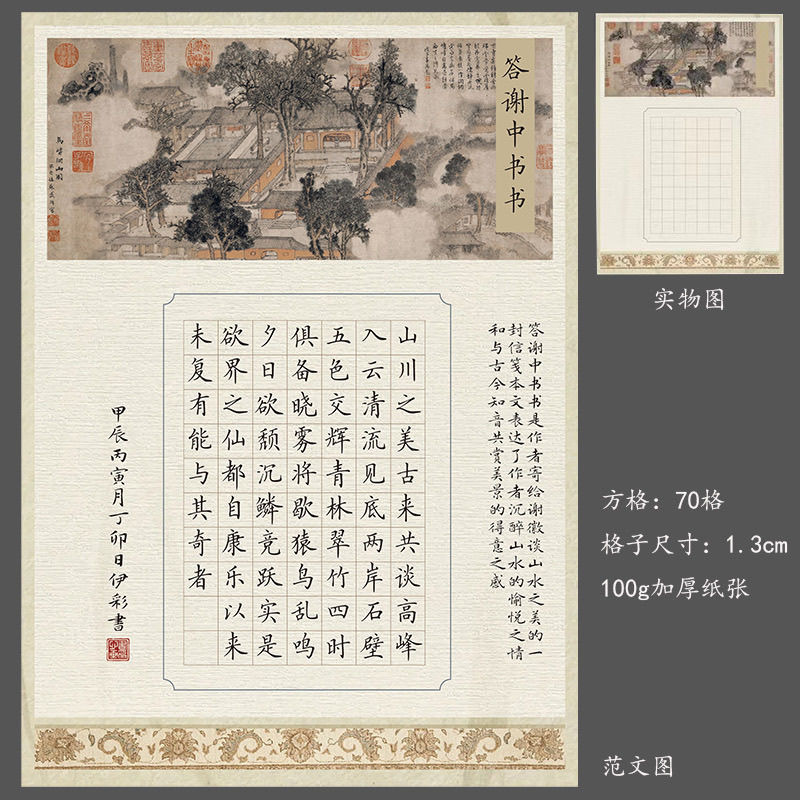 答谢中书书
答谢中书书是作者寄给谢徵谈山水之美的一
封信笺本文表达了作者沉醉山水的愉悦之情
和与古今知音共赏美景的得意之感
山川之美古来共谈高峰
入云清流见底两岸石壁
五色交辉青林翠竹四时
俱备晓雾将歇猿鸟乱鸣
夕日欲颓沉鳞竞跃实是
欲界之仙都自康乐以来
未复有能与其奇者
甲辰丙寅月丁卯日伊彩書
实物图
方格：70格
格子尺寸：1.3cm
100g加厚纸张
范文图